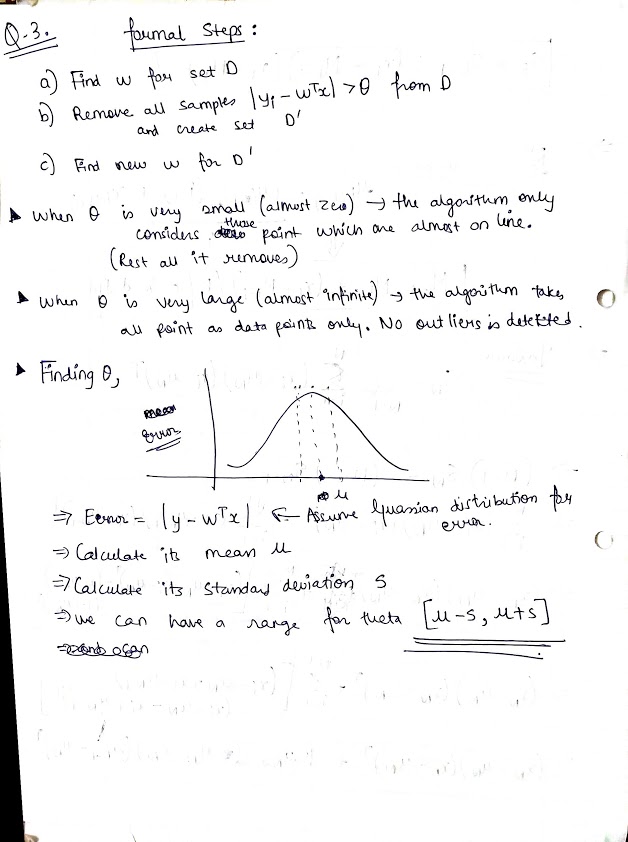 Q-3. formal steps :
a) Find w for set D
b) Remove all samples |yi - wᵀx| > θ from D
and create set D'
c) Find new w for D'
▲ When θ is very small (almost zero) → the algorithm only
considers those point which are almost on line.
(Rest all it removes)
▲ When θ is very large (almost infinite) → the algorithm takes
all point as data points only. No outliers is detected.
▲ Finding θ,
mean
error
μ
⇒ Error = |y - wᵀx| ← Assume Guassian distribution for
error.
⇒ Calculate its mean μ
⇒ Calculate its standard deviation s
⇒ we can have a range for theta [μ-s, μ+s]